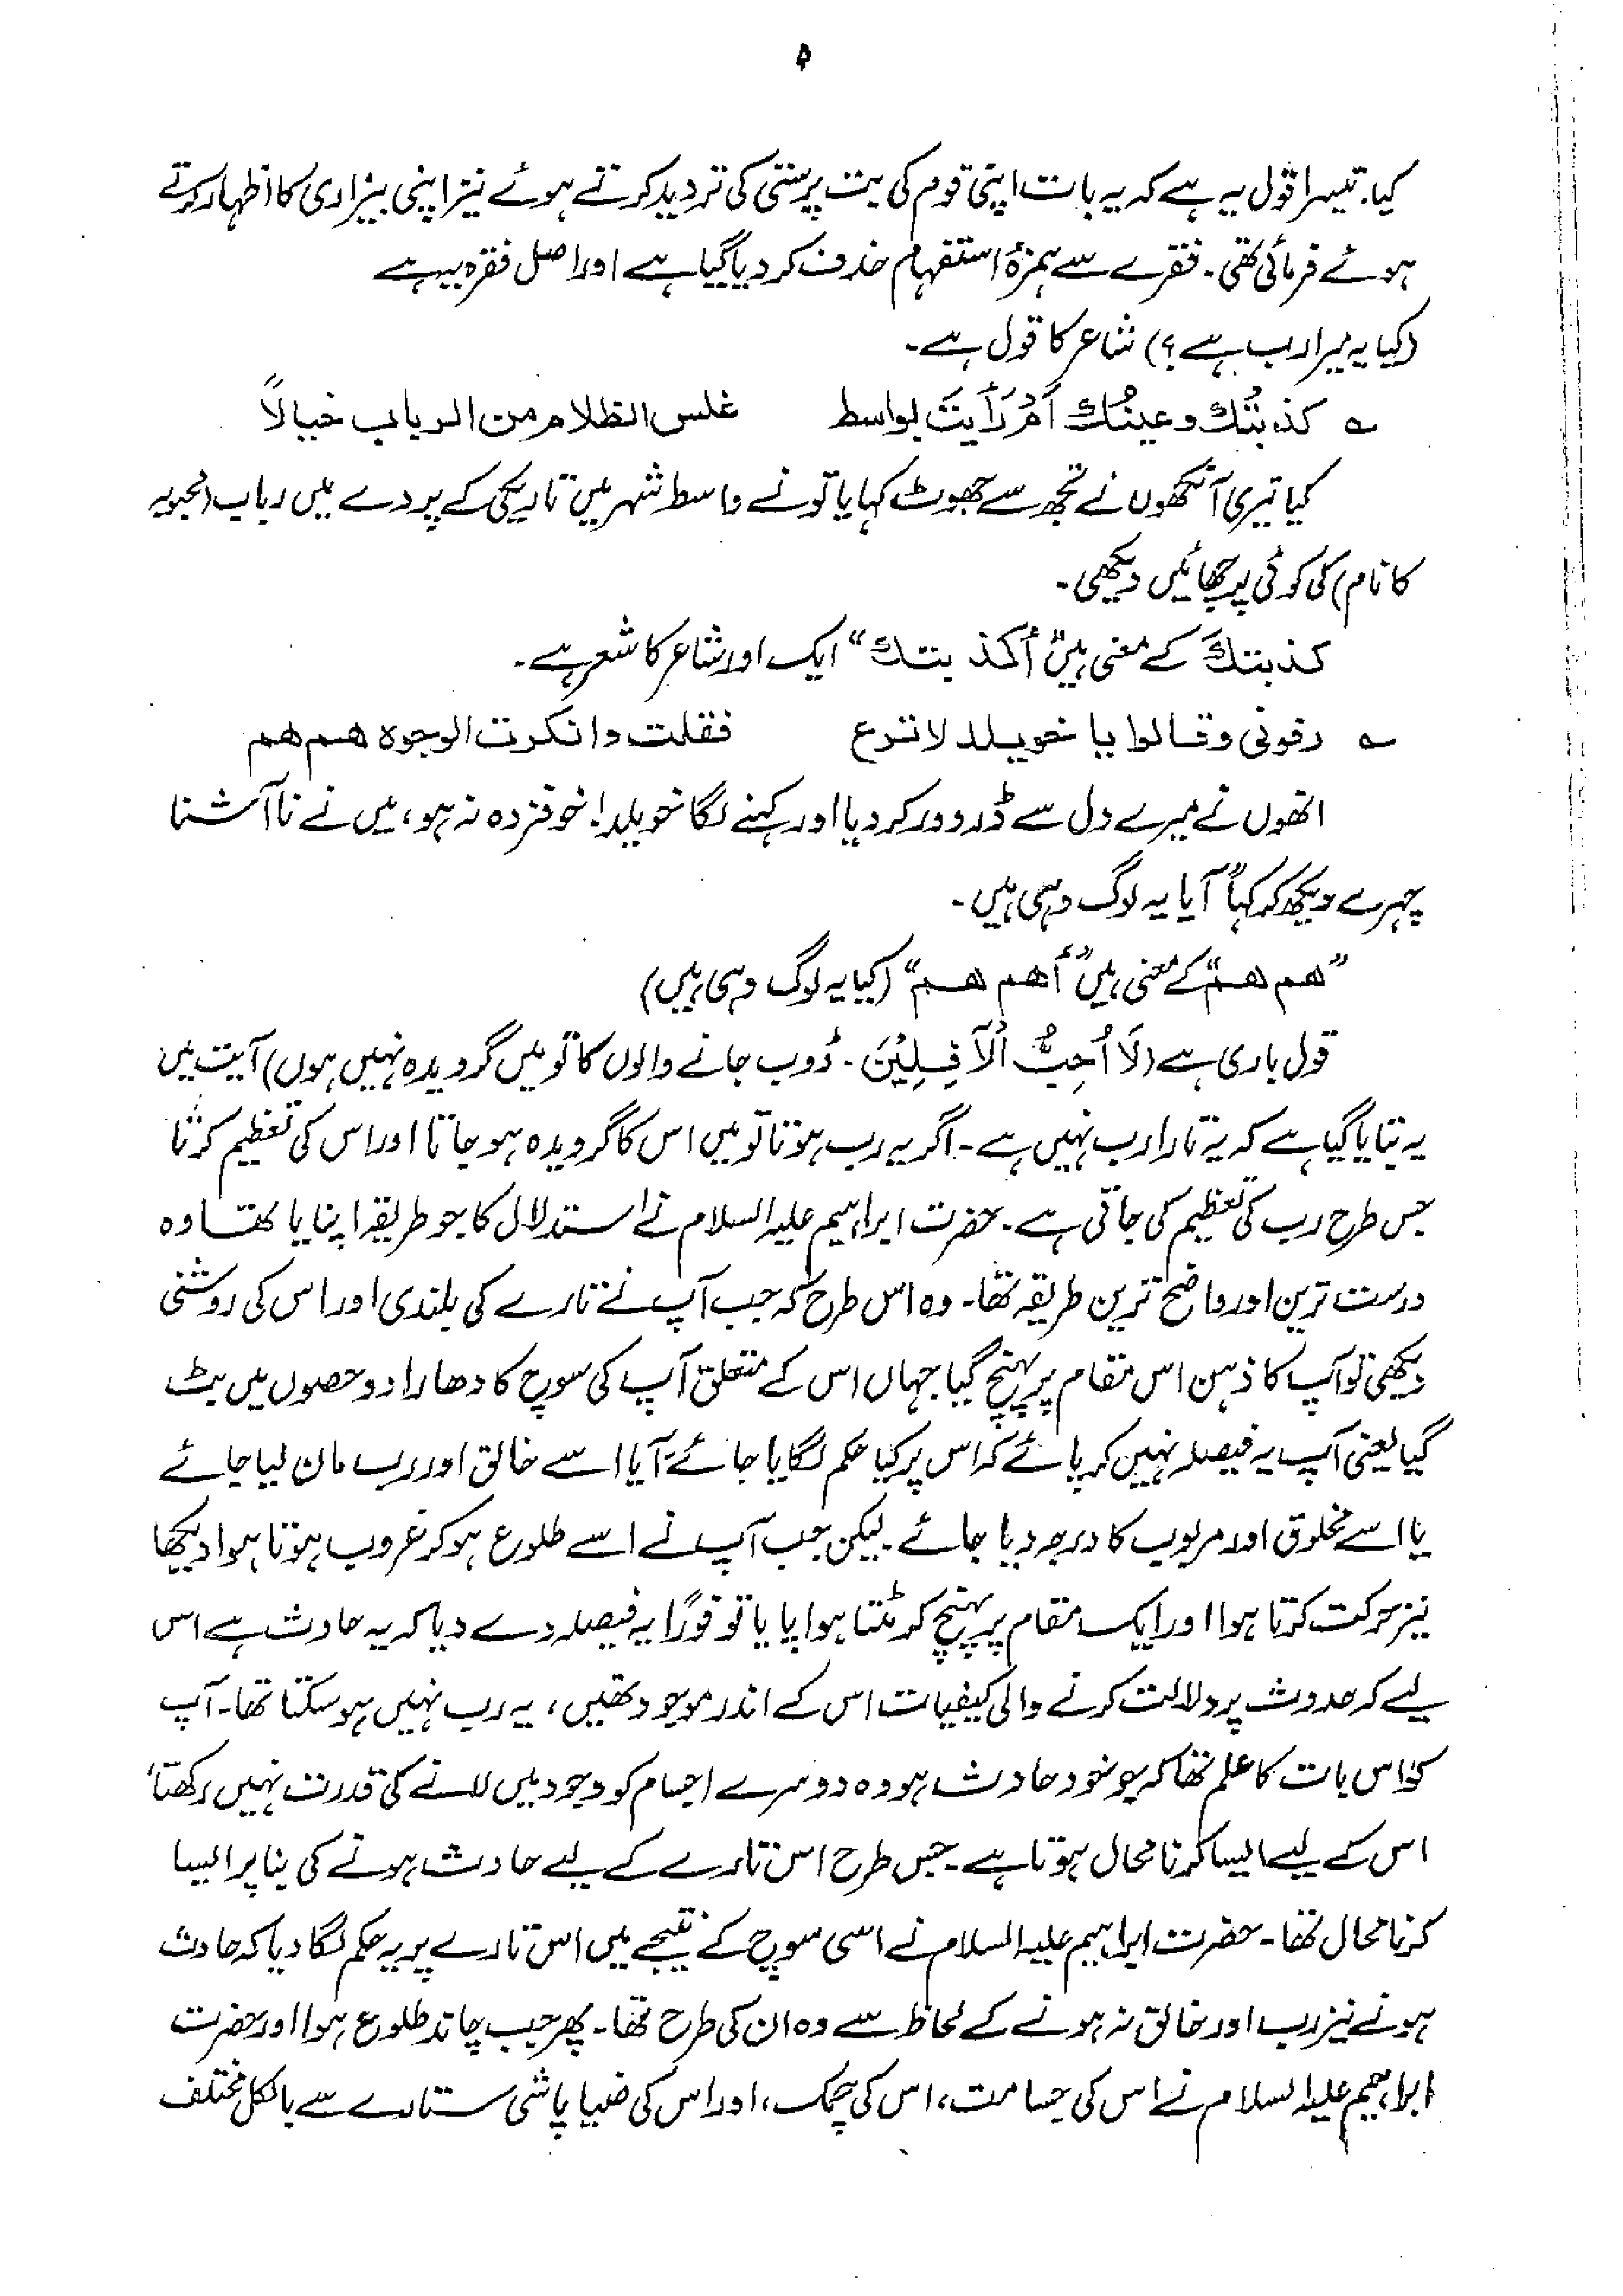 ۵
کیا۔ تیسرا قول یہ ہے کہ یہ بات اپنی قوم کی بت پرستی کی تردید کرتے ہوئے نیز اپنی بیزاری کا اظہار کرتے
ہوئے فرمائی تھی۔ فقرے سے ہمزۂ استفہام حذف کر دیا گیا ہے اور اصل فقرہ یہ ہے
(کیا یہ میرا رب ہے؟) شاعر کا قول ہے۔
؎ كذبتُك وعينُك أَمْ رَأَيتَ بواسط غلس الظلام من الرباب خيالاً
کیا تیری آنکھوں نے تجھ سے جھوٹ کہا یا تو نے واسط شہر میں تاریکی کے پردے میں رباب (محبوبہ
کا نام) کی کوئی پرچھائیں دیکھی۔
كذبتكَ کے معنی ہیں "أكذبتك" ایک اور شاعر کا شعر ہے۔
؎ رفونى وقالوا يا خويلد لا ترع فقلت وانكرت الوجوه هم هم
انھوں نے میرے دل سے ڈر دور کر دیا اور کہنے لگا خویلد! خوفزدہ نہ ہو، میں نے نا آشنا
چہرے دیکھ کر کہا "آیا یہ لوگ وہی ہیں۔
"هم هم" کے معنی ہیں "أهم هم" (کیا یہ لوگ وہی ہیں)
قول باری ہے (لَا أُحِبُّ الْآفِلِيْنَ۔ ڈوب جانے والوں کا تو میں گرویدہ نہیں ہوں) آیت میں
یہ بتایا گیا ہے کہ یہ تارا رب نہیں ہے۔ اگر یہ رب ہوتا تو میں اس کا گرویدہ ہو جاتا اور اس کی تعظیم کرتا
جس طرح رب کی تعظیم کی جاتی ہے۔ حضرت ابراہیم علیہ السلام نے استدلال کا جو طریقہ اپنایا تھا وہ
درست ترین اور واضح ترین طریقہ تھا۔ وہ اس طرح کہ جب آپ نے تارے کی بلندی اور اس کی روشنی
دیکھی تو آپ کا ذہن اس مقام پر پہنچ گیا جہاں اس کے متعلق آپ کی سوچ کا دھارا دو حصوں میں بٹ
گیا یعنی آپ یہ فیصلہ نہیں کر پائے کہ اس پر کیا حکم لگایا جائے۔ آیا اسے خالق اور رب مان لیا جائے
یا اسے مخلوق اور مربوب کا درجہ دیا جائے۔ لیکن جب آپ نے اسے طلوع ہو کر غروب ہوتا ہوا دیکھا
نیز حرکت کرتا ہوا اور ایک مقام پر پہنچ کر ٹلتا ہوا پایا تو فوراً یہ فیصلہ دے دیا کہ یہ حادث ہے اس
لیے کہ حدوث پر دلالت کرنے والی کیفیات اس کے اندر موجود تھیں، یہ رب نہیں ہو سکتا تھا۔ آپ
کو اس بات کا علم تھا کہ جو خود حادث ہو وہ دوسرے اجسام کو وجود میں لانے کی قدرت نہیں رکھتا،
اس کے لیے ایسا کرنا محال ہوتا ہے۔ جس طرح اس تارے کے لیے حادث ہونے کی بنا پر ایسا
کرنا محال تھا۔ حضرت ابراہیم علیہ السلام نے اسی سوچ کے نتیجے میں اس تارے پر یہ حکم لگا دیا کہ حادث
ہونے نیز رب اور خالق نہ ہونے کے لحاظ سے وہ ان کی طرح تھا۔ پھر جب چاند طلوع ہوا اور حضرت
ابراہیم علیہ السلام نے اس کی جسامت، اس کی چمک، اور اس کی ضیا پاشی ستارے سے بالکل مختلف